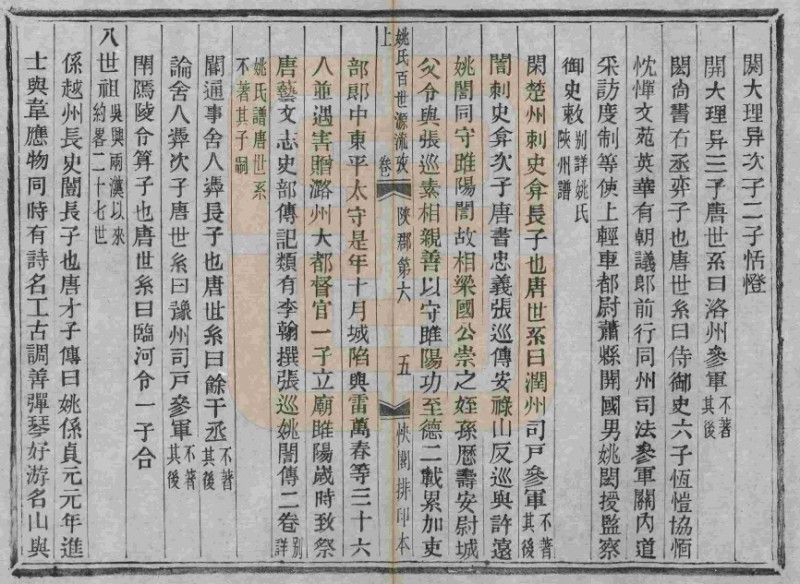 闋大理异次子二子恬燈
開大理异三子唐世系曰洛州參軍不著其後
閎尚書右丞弈子也唐世系曰侍御史六子恆愷協恂
忱憚文苑英華有朝議郎前行同州司法參軍關內道
采訪度制等使上輕車都尉蕭縣開國男姚閎授監察
御史敕別詳姚氏陝州譜
閑楚州刺史弇長子也唐世系曰潤州司戸參軍不著其後
誾刺史弇次子唐書忠義張巡傳安祿山反巡與許遠
姚誾同守睢陽誾故相梁國公崇之姪孫歷壽安尉城
父令與張巡素相親善以守睢陽功至德二載累加吏
部郎中東平太守是年十月城陷與雷萬春等三十六
人並遇害贈潞州大都督官一子立廟睢陽歲時致祭
唐藝文志史部傳記類有李翰撰張巡姚誾傳二卷別詳
姚氏譜唐世系不著其子嗣
闢通事舍人彝長子也唐世系曰餘干丞不著其後
論舍人彝次子唐世系曰豫州司戸參軍不著其後
閈鄢陵令算子也唐世系曰臨河令一子合
八世祖吳興兩漢以來約畧二十七世
係越州長史闓長子也唐才子傳曰姚係貞元元年進
士與韋應物同時有詩名工古調善彈琴好游名山與
姚氏百世源流攷上 卷二 陝郡第六 五 快閣排印本